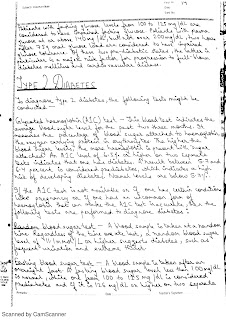 Patients with fasting glucose levels from 100 to 125 mg/dL are
considered to have impaired fasting glucose. Patients with plasma
glucose at or above 140 mg/dL but not over 200 mg/dL
75 g oral glucose load are considered to have impaired
glucose tolerance. Of these two prediabetic states, the latter in
particular is a major risk factor for progression to full-blown
diabetes mellitus and cardiovascular disease.
TYPE 2 DIABETES
To diagnose type 2 diabetes, the following tests might be
conducted:
Glycated hemoglobin (A1C) test - This blood test indicates the
average blood sugar level for the past two three months. It
measures the percentage of blood sugar attached to haemoglobin
the oxygen carrying protein in erythrocytes. The higher the
blood sugar levels, the more haemoglobin is present with sugar
attached. An A1C level of 6.5% or higher on two separate
tests indicates that one has diabetes. A result between 5.7 and
6.4 percent is considered prediabetes, which indicates a high
risk of developing diabetes. Normal levels are below 5.7
If the A1C test is not available or if one has certain conditions
like pregnancy or if one has an uncommon form of
hemoglobin that can make the A1C test inaccurate, the
following tests are performed to diagnose diabetes:
Random blood sugar test - A blood sample is taken at a random
time. Regardless of the time one ate, a random blood sugar
level of 11.1 mmol/L or higher suggests diabetes, such as
frequent urination and extreme thirst.
Fasting blood sugar test - A blood sample is taken after an
overnight fast. A fasting blood sugar level less than 100 mg/dL
is normal while one from 100 to 125 mg/dL is considered
prediabetes and if it is 126 mg/dL or higher on two separate
Scanned by CamScanner